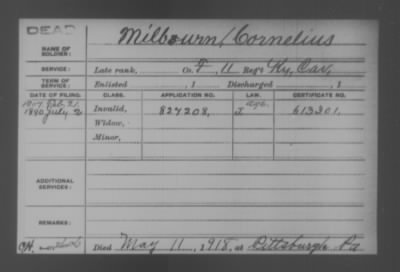 DEAD
NAME OF SOLDIER: Milbourn, Cornelius
SERVICE: Late rank, Co. F, 11 Reg't Ky. Cav.
TERM OF SERVICE: Enlisted , 1 Discharged , 1
DATE OF FILING. CLASS. APPLICATION NO. LAW. CERTIFICATE NO.
1907 Feb. 21. Age.
1890 July 2 Invalid, 827208, J 613301.
Widow,
Minor,
ADDITIONAL SERVICES:
REMARKS:
Died May 11, 1918, at Pittsburgh Pa